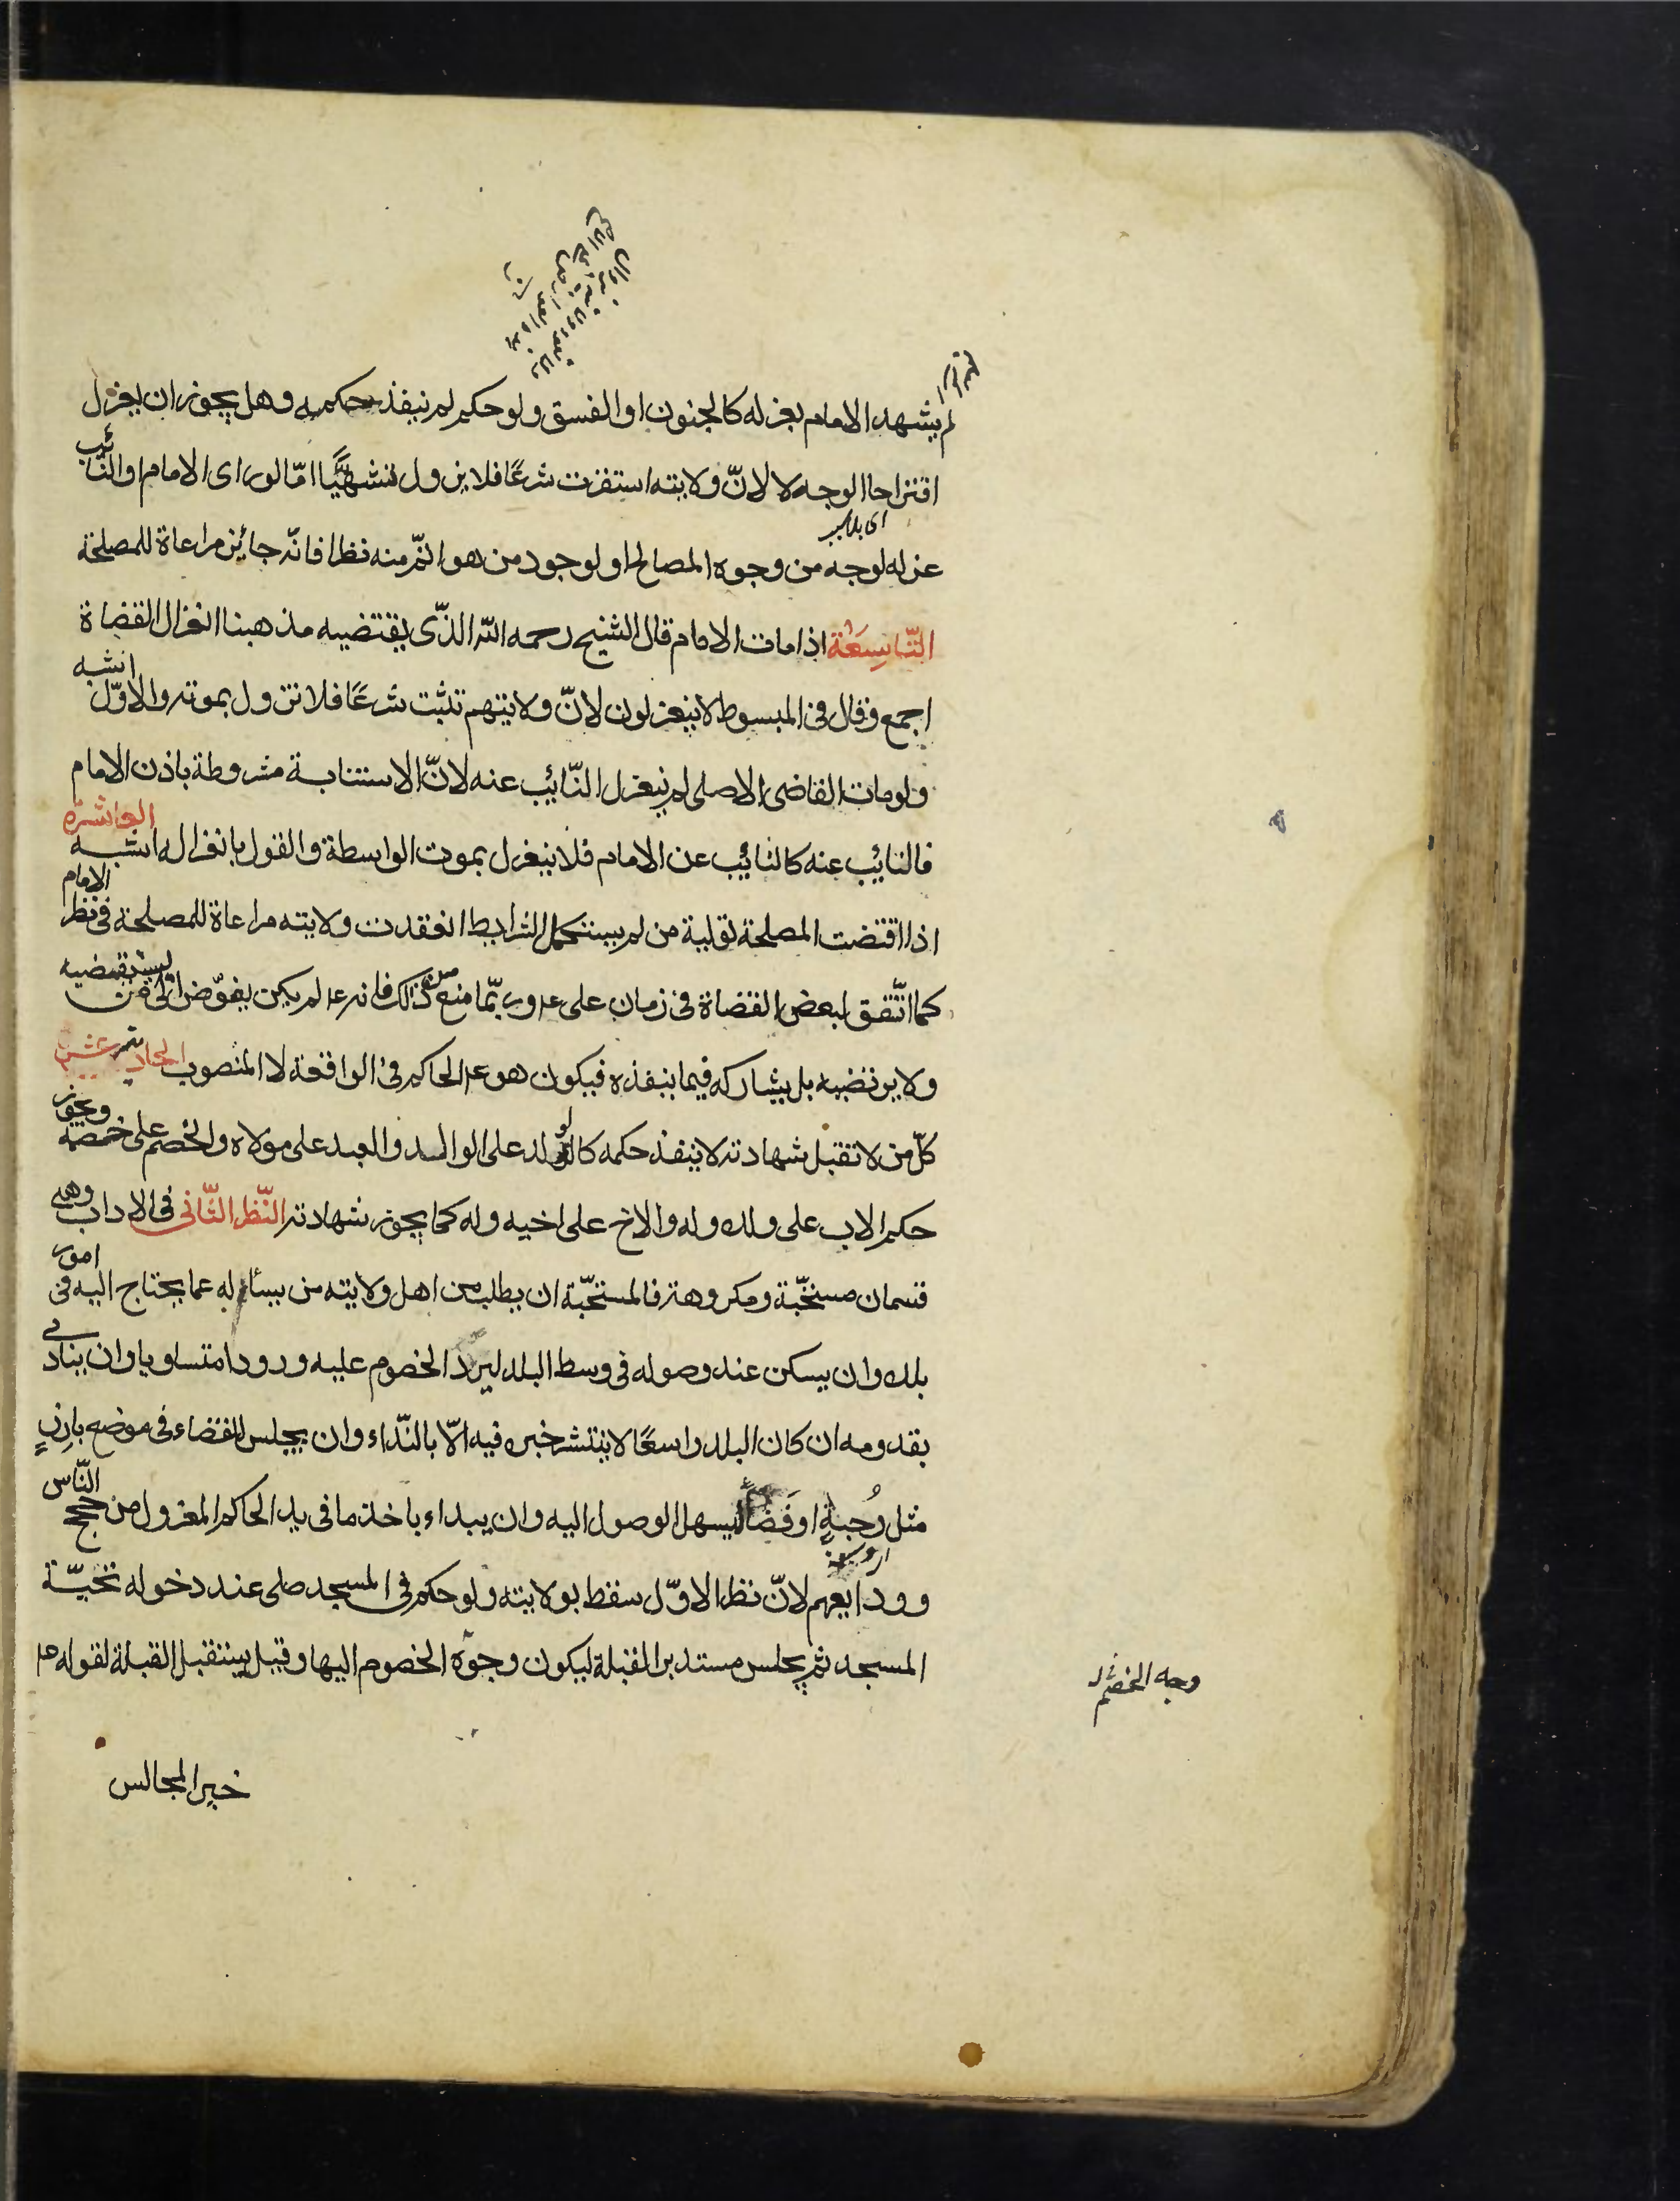 لم يشهد الامام بعزله كالجنون او الفسق ولو حكم لم ينفذ حكمه وهل يجوز ان يعزل
اقتراحا الوجه لا لانّ ولايته استقرت شرعًا فلا يزول تشهيًّا امّا لو راى الامام او النّائب
اى
عزله لوجه من وجوه المصالح او لوجود من هو اتمّ منه نظرا فانّه جائز مراعاة للمصلحة
التّاسِعَة اذا مات الامام قال الشيخ رحمه الله الذّى يقتضيه مذهبنا انعزال القضاة
اجمع وقال فى المبسوط لا ينعزلون لانّ ولايتهم تثبت شرعًا فلا تزول بموته والاوّل اشبه
ولو مات القاضى الاصلى لم ينعزل النّائب عنه لانّ الاستنابة مشروطة باذن الامام
فالنائب عنه كالنائب عن الامام فلا ينعزل بموت الواسطة والقول بانعزاله اشبه العاشرة
اذا اقتضت المصلحة تولية من لم يستكمل الشرايط انعقدت ولايته مراعاة للمصلحة فى نظر الامام
كما اتّفق لبعض القضاة فى زمان على ع وربّما منع من ذلك فانه ع لم يكن يفوّض الى من يستقضيه
ولا يرتضيه بل يشاركه فيما ينفذه فيكون هو ع الحاكم فى الواقعة لا المنصوب الحادية عشر
كلّ من لا تقبل شهادته لا ينفذ حكمه كالولد على الوالد والعبد على مولاه والخصم على خصمه ويجوز
حكم الاب على ولده وله والاخ على اخيه وله كما يجوز شهادته النّظر الثّانى فى الاداب وهى
قسمان مستحبّة ومكروهة فالمستحبّة ان يطلب من اهل ولايته من يسئله عما يحتاج اليه فى امور
بلده وان يسكن عند وصوله فى وسط البلد ليرد الخصوم عليه ورودا متساويا وان ينادى
بقدومه ان كان البلد واسعًا لا ينتشر خبره فيه الّا بالنّداء وان يجلس للقضاء فى موضع بارزٍ
مثل رُحبةٍ او فَضاءٍ ليسهل الوصول اليه وان يبداء باخذ ما فى يد الحاكم المعزول من حجج النّاس
وودايعهم لانّ نظر الاوّل سقط بولايته ولو حكم فى المسجد صلى عند دخوله تحيّة
المسجد ثم يجلس مستدبر القبلة ليكون وجوه الخصوم اليها وقيل يستقبل القبلة لقوله ع
وجه الخصم
خير المجالس